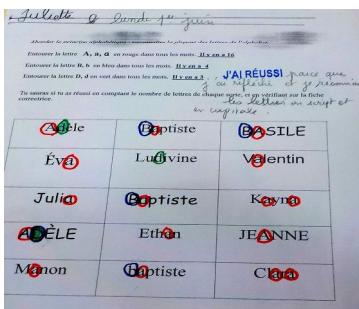 Juliette lundi 1er juin
Aborder le principe alphabétique : reconnaître la plupart des lettres de l'alphabet
Entourer la lettre A, a, a en rouge dans tous les mots. Il y en a 16
Entourer la lettre B, b en bleu dans tous les mots. Il y en a 4
Entourer la lettre D, d en vert dans tous les mots. Il y en a 3
J'AI RÉUSSI parce que
j'ai réfléchi et je reconnais
les lettres en script et
en capitale.
Tu sauras si tu as réussi en comptant le nombre de lettres de chaque sorte, et en vérifiant sur la fiche
correctrice.
Adèle Baptiste BASILE
Éva Ludivine Valentin
Julia Baptiste Kayna
ADÈLE Ethan JEANNE
Manon baptiste Clara